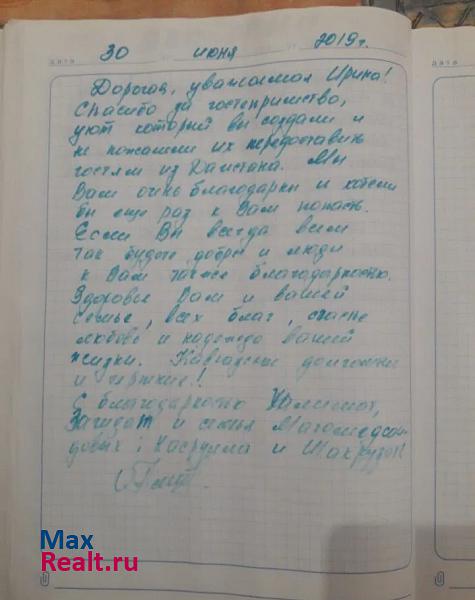 дата 30 июня 2019 г.
Дорогая, уважаемая Ирина!
Спасибо за гостеприимство,
уют который вы создали и
не пожалели их передоставить
гостям из Дагестана. Мы
Вам очень благодарны и хотели
бы еще раз к Вам попасть.
Если Вы всегда всем
так будете добры и люди
к Вам также благодарностью.
Здоровье Вам и вашей
семье, всех благ, счастье
любовь и надежда вашей
жизни. Кавказские
и !
С благодарностью
Загидат и семья Магомедса-
довых: Насрулла и
Max
Realt.ru